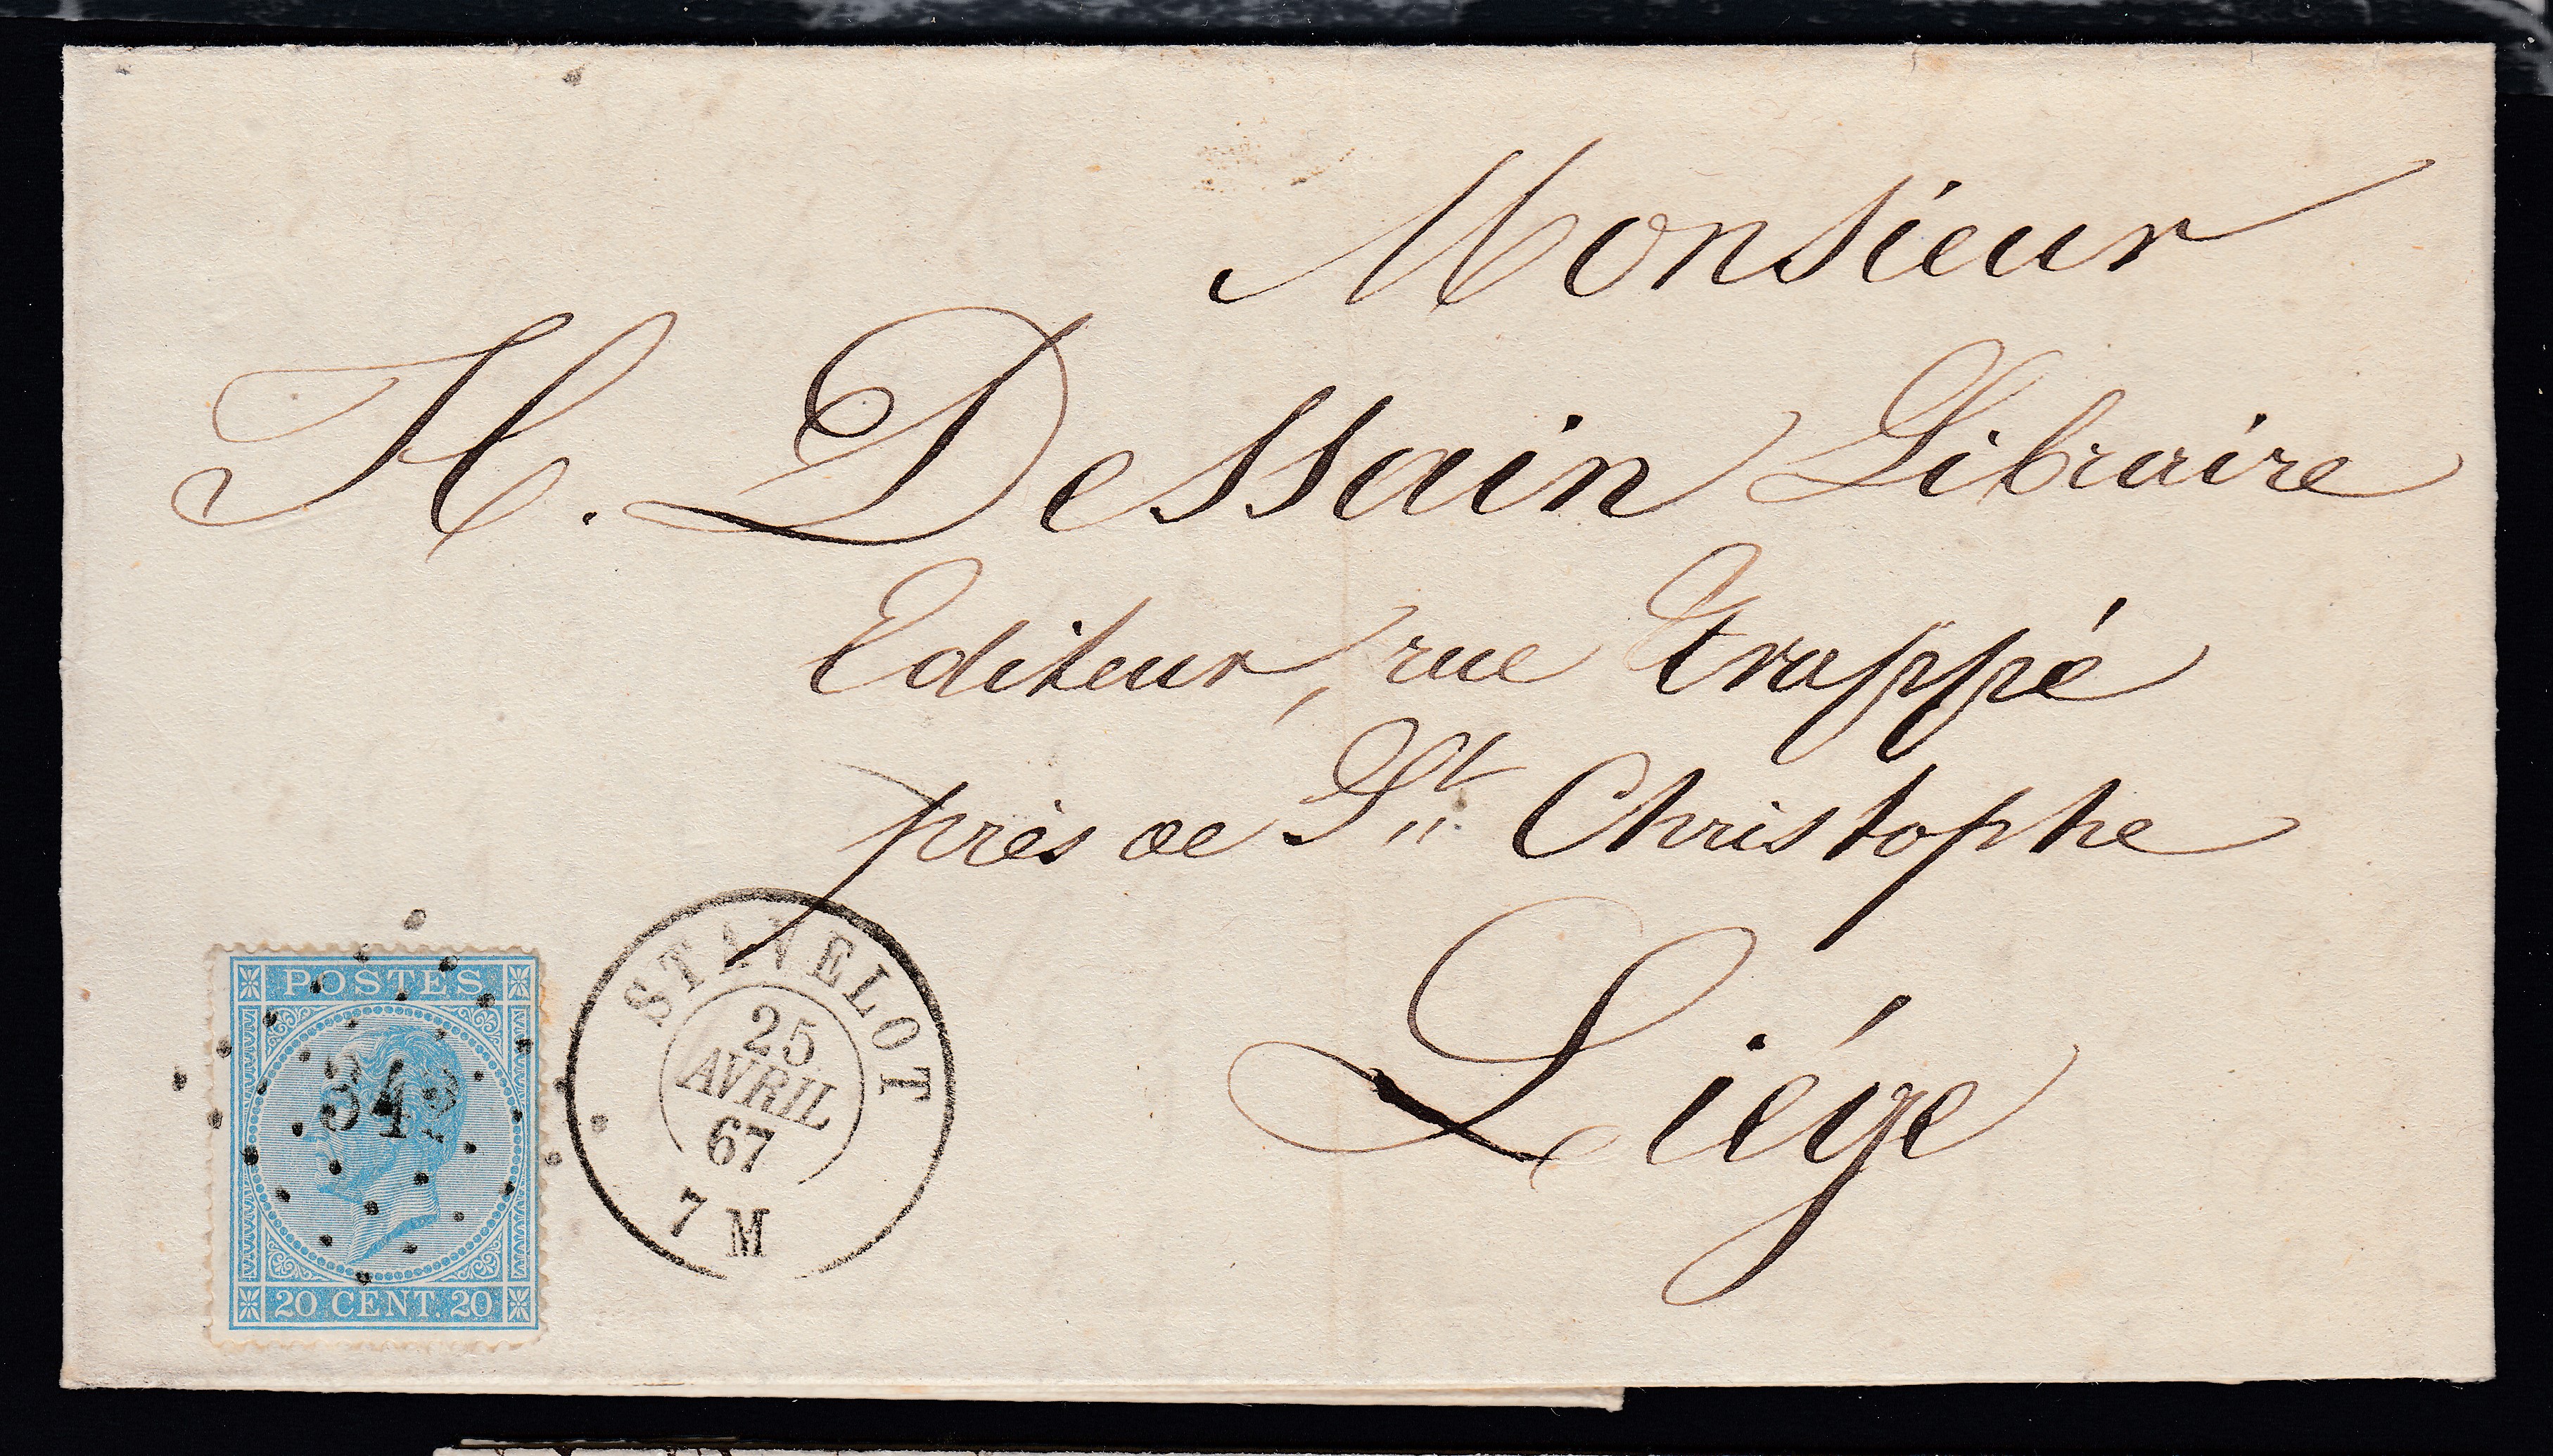 Monsieur
H. Dessain Libraire
Editeur, rue Trappé
près de St Christophe
Liége
POSTES
342
20 CENT. 20
STAVELOT
25
AVRIL
67
7 M